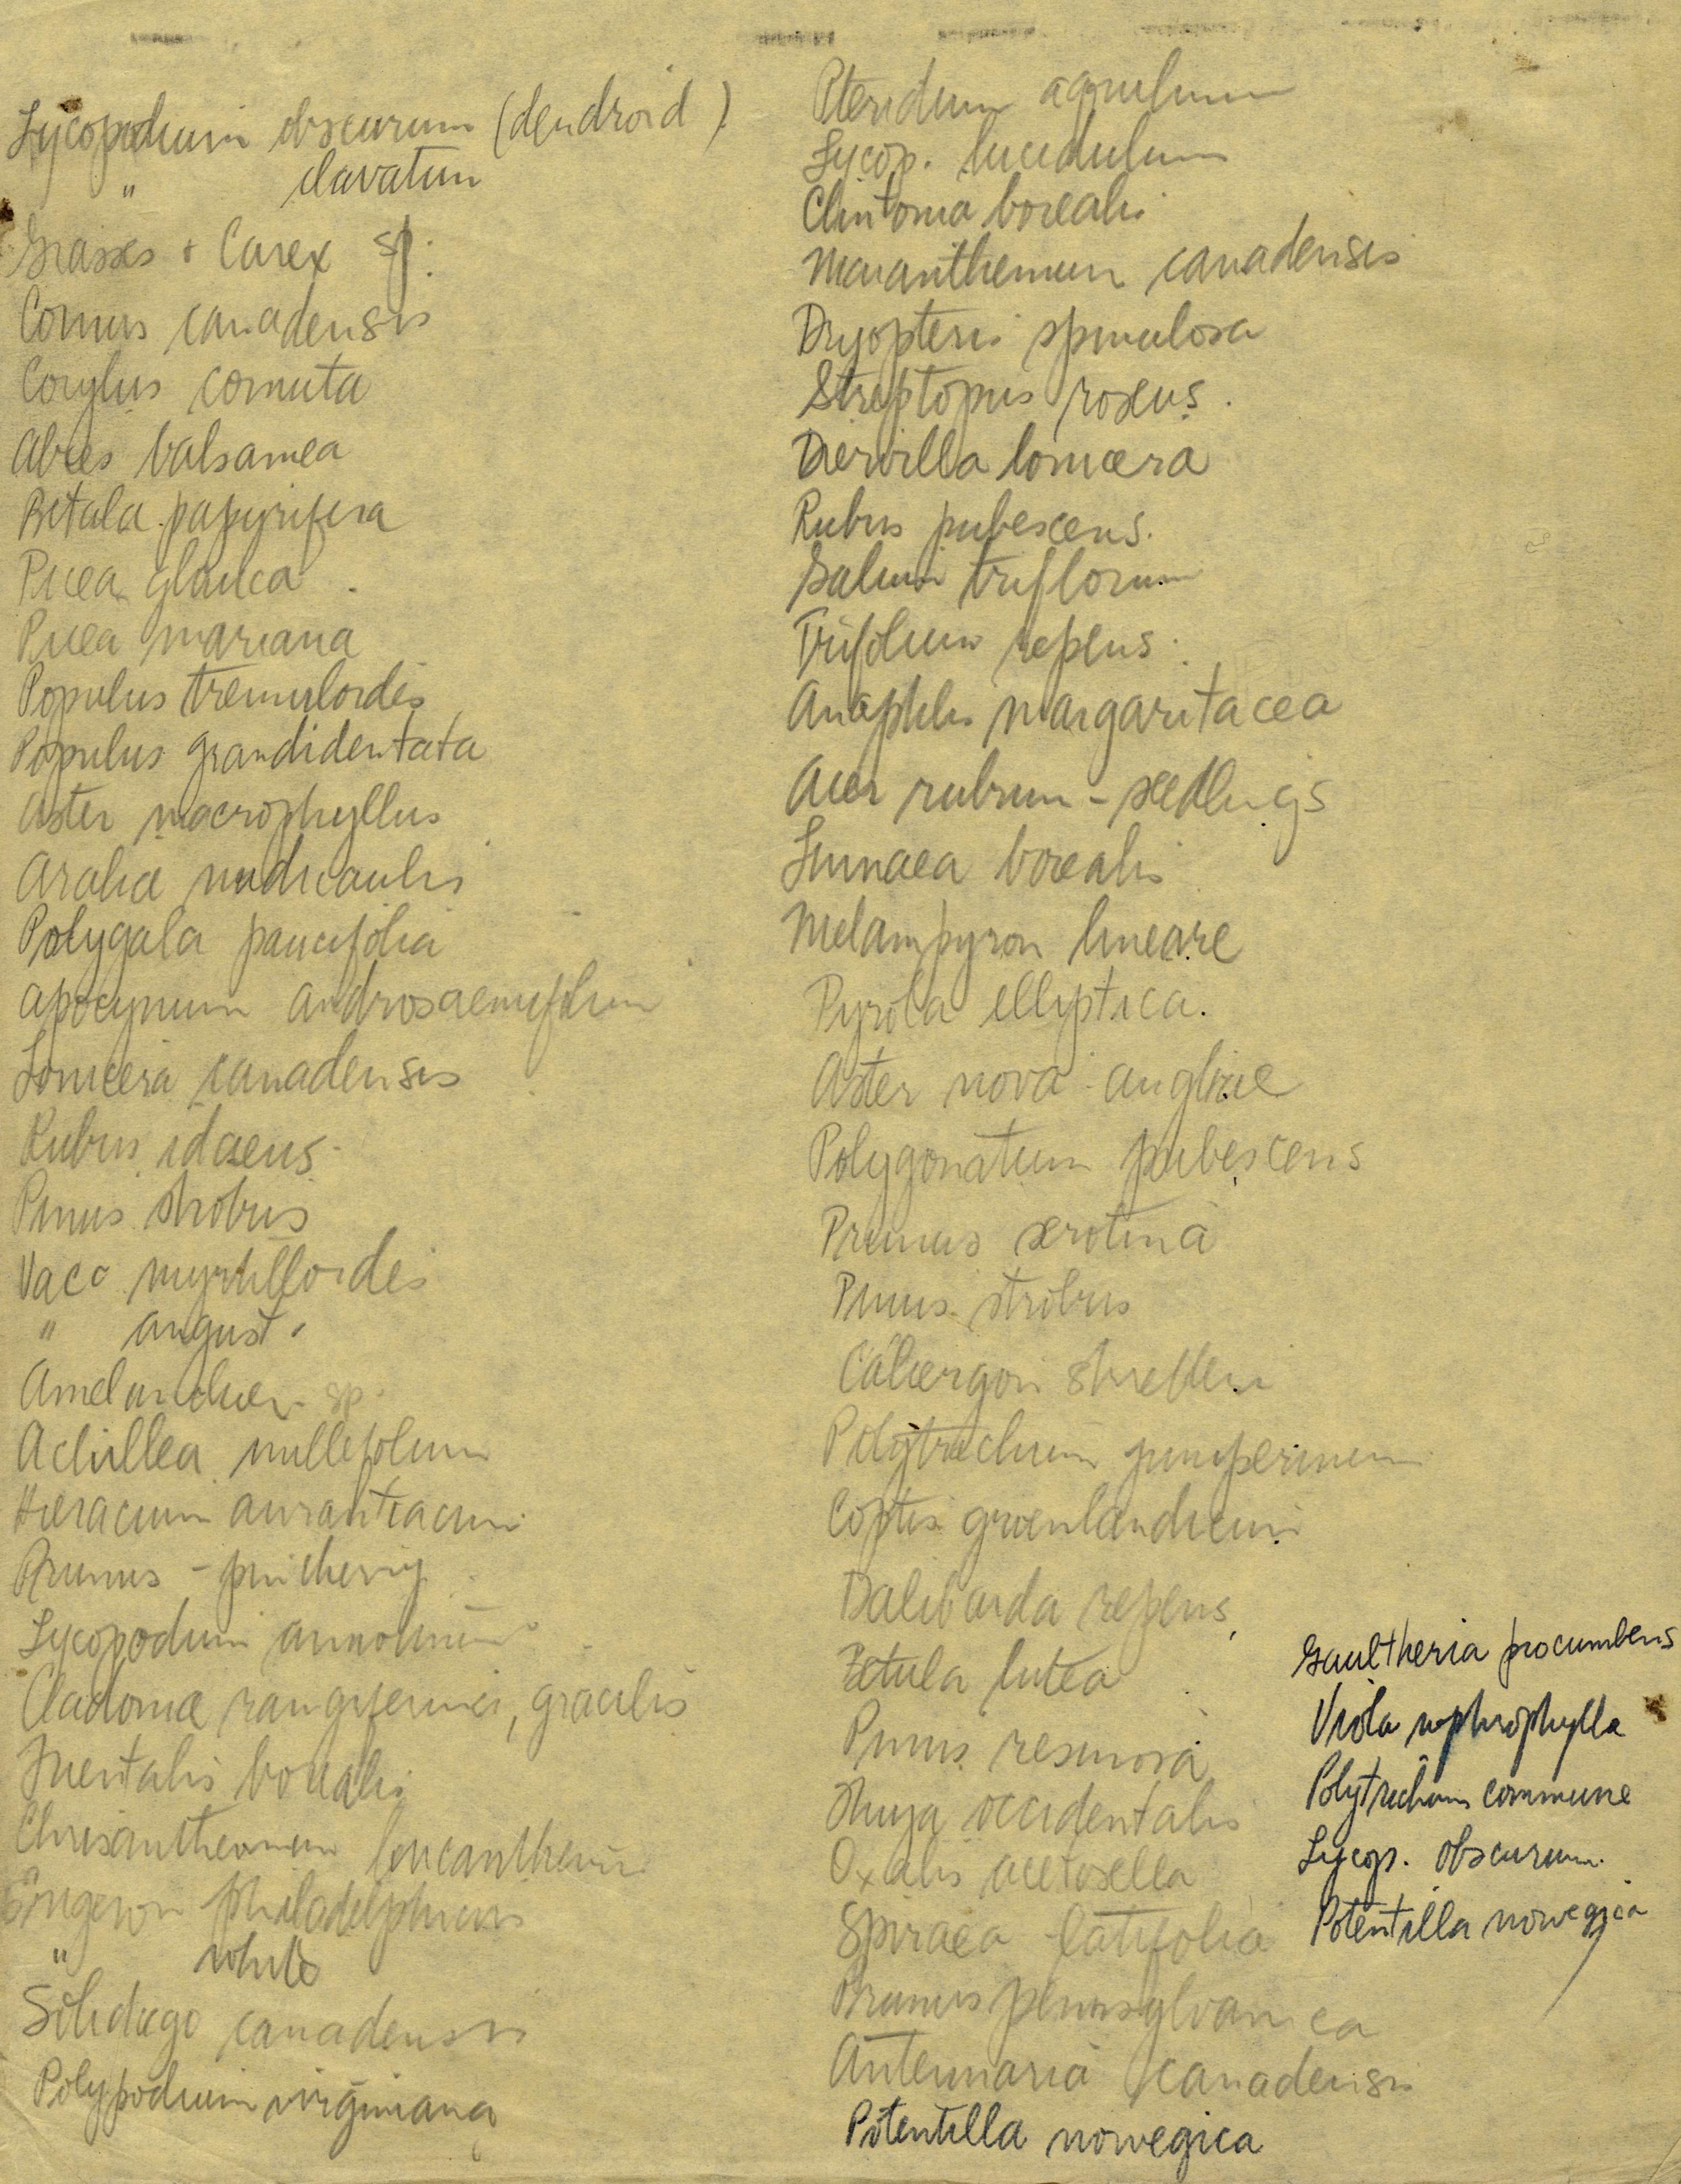 Lycopodium obscurum (dendroid)
" clavatum
Grasses + Carex sp.
Cornus canadensis
Corylus cornuta
Abies balsamea
Betula papyrifera
Picea glauca
Picea mariana
Populus tremuloides
Populus grandidentata
Aster macrophyllus
Aralia nudicaulis
Polygala paucifolia
Apocynum androsaemifolium
Lonicera canadensis
Rubus idaeus
Pinus strobus
Vacc myrtilloides
" angust.
Amelanchier sp.
Achillea millefolium
Hieracium aurantiacum
Prunus - pin cherry
Lycopodium annotinum
Cladonia rangiferina, gracilis
Trientalis borealis
Chrisanthemum leucanthemum
Erigeron philadelphicus
" white
Solidago canadensis
Polypodium virginiana
Pteridium aquilinum
Lycop. lucidulum
Clintonia borealis
Maianthemum canadensis
Dryopteris spinulosa
Streptopus roseus.
Diervilla lonicera
Rubus pubescens.
Galium triflorum
Trifolium repens.
Anaphilis margaritacea
Acer rubrum - seedlings
Linnaea borealis
Melampyron lineare
Pyrola elliptica.
Aster nova-angliae
Polygonatum pubescens
Prunus serotina
Pinus strobus
Caliergon shreberi
Polytrichum juniperinum
Coptis groenlandicum
Dalibarda repens
Betula lutea
Pinus resinosa
Thuja occidentalis
Oxalis acetosella
Spiraea latifolia
Prunus pennsylvanica
Antennaria canadensis
Potentilla norvegica
Gaultheria procumbens
Viola nephrophylla
Polytrichum commune
Lycop. obscurum.
Potentilla norvegica